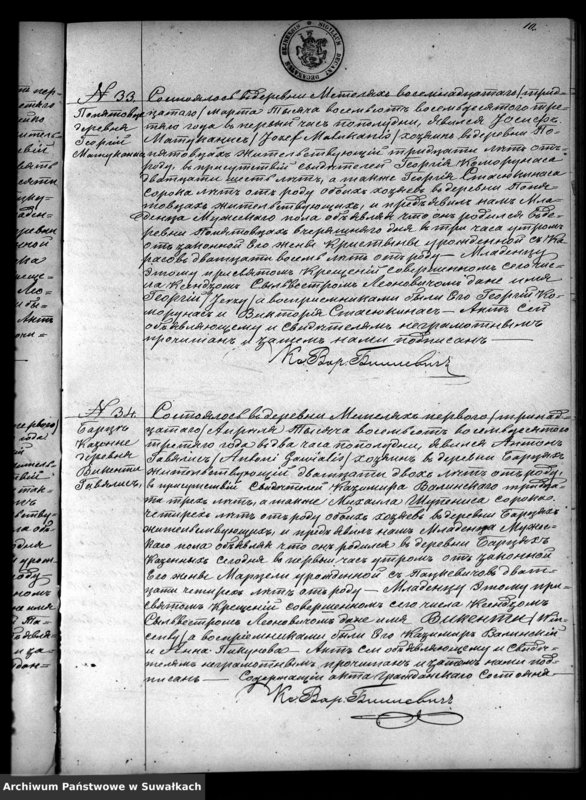 10
N 33.
Понятовцы
деревня
Георгій
Матукани
Состоялось въ деревни Метеляхъ восемнадцатаго /трид-
цатаго/ Марта Тысяча восемьсотъ восемьдесятаго тре-
тяго года въ первый часъ пополудни, явился Іосифъ
Матуканисъ /Josef Matukanis/ хозяинъ въ деревни По-
нятовцахъ жительствующій тридцати лѣтъ отъ
роду, въ присутствіи свидѣтелей Георгія Коморунаса
двадцати шести лѣтъ, а также Георгія Стасюкинаса
сорока лѣтъ отъ роду обоихъ хозяевъ въ деревни Поня-
товцахъ жительствующихъ, и предъявилъ намъ Мла-
денца Мужескаго пола объявляя что онъ родился въ де-
ревни Понятовцахъ вчерашняго дня въ три часа утромъ
отъ законной Его жены Кристины урожденной съ Ка-
расовъ двадцати восемь лѣтъ отъ роду — Младенцу
этому при святомъ Крещеніи совершенномъ сего чис-
ла Ксендзомъ Сильвестромъ Леоновичомъ дано имя
Георгій /Jerzy/ а воспріемниками были Его Георгій Ко-
морунасъ и Викторія Стасюкинасъ — Актъ сей
объявляющему и свидѣтелямъ неграмотнымъ
прочитанъ и затемъ нами подписанъ —
Кс. Вар. Билевичъ
N 34.
Барцы
Казенне
деревня
Викентій
Гавялисъ
Состоялось въ деревни Метеляхъ перваго /тринад-
цатаго/ Апреля Тысяча восемьсотъ восемьдесятаго
третяго года въ два часа пополудни, явился Антонъ
Гавялисъ /Antoni Gawialis/ хозяинъ въ деревни Барцяхъ
жительствующій двадцати двохъ лѣтъ отъ роду,
въ присутствіи Свидѣтелей Казимира Валинскаго тридца-
ти трехъ лѣтъ, а также Михаила сорока
четирехъ лѣтъ отъ роду обоихъ хозяевъ въ деревни Барцяхъ
жительствующихъ, и предъявилъ намъ Младенца Муже-
скаго пола объявляя что онъ родился въ деревни Барцяхъ
Казенныхъ сегодня въ первый часъ утромъ отъ законной
Его жены Марцели урожденной съ Пацкевичовъ двад-
цати четирехъ лѣтъ отъ роду — Младенцу этому при
святомъ Крещеніи совершенномъ сего числа Ксендзомъ
Сильвестромъ Леоновичомъ дано имя Викентій /Win-
centy/ а воспріемниками были Его Казимиръ Валинскій
и Анна Пикунова — Актъ сей объявляющему и Свидѣ-
телямъ неграмотнымъ прочитанъ и затемъ нами под-
писанъ — Содержащій акта гражданскаго состоянія
Кс. Вар. Билевичъ
Archiwum Państwowe w Suwałkach